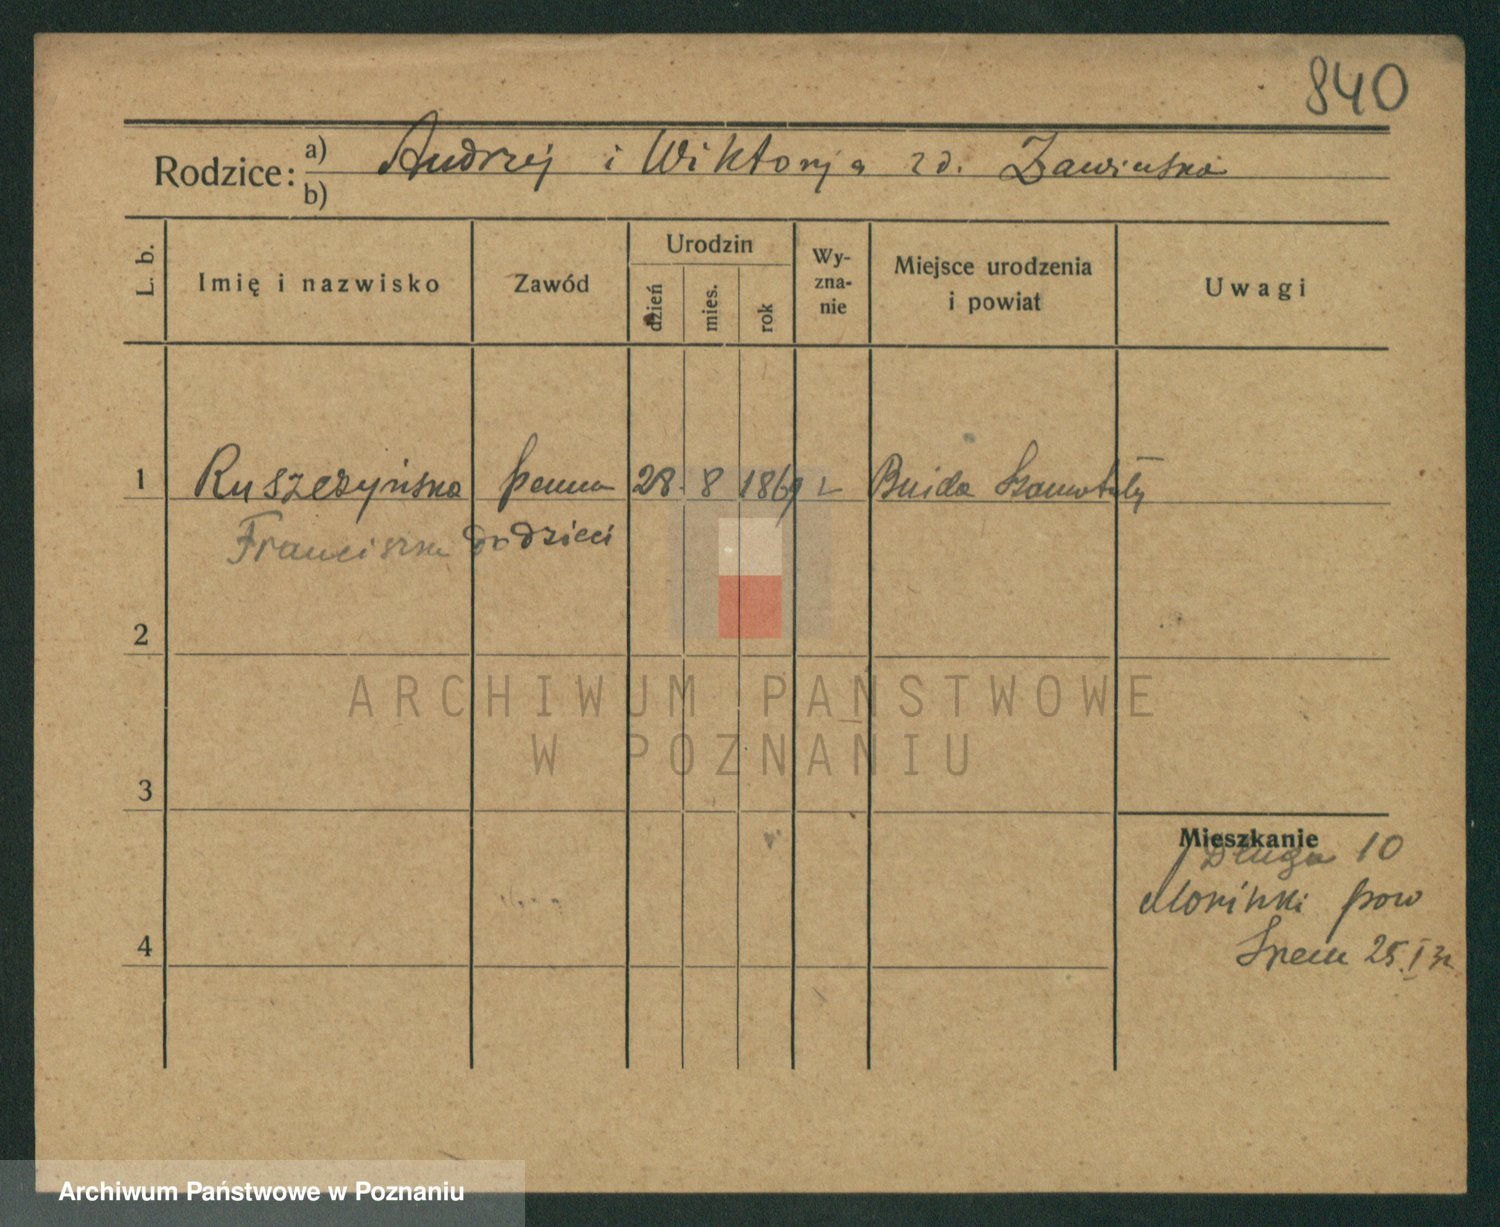 840
Rodzice: a) Andrzej i Wiktorja zd. Zawinska
b)
L. b.
Imię i nazwisko
Zawód
Urodzin
dzień
mies.
rok
Wy-
zna-
nie
Miejsce urodzenia
i powiat
Uwagi
1 Ruszczyńska panna 28. 8 1869 Szamotuły
Franciszka do dzieci
2
3
4
Mieszkanie
Długa 10
pow
Śrem 25.I
ARCHIWUM PAŃSTWOWE
W POZNANIU
Archiwum Państwowe w Poznaniu